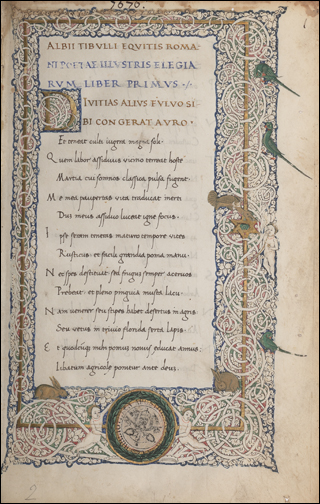 ALBII TIBVLLI EQVITIS ROMA
NI POETAE ILLVSTRIS ELEGIA
RVM LIBER PRIMVS
DIVITIAS ALIVS FVLVO SI
BI CONGERAT AVRO.
Et teneat culti iugera magna soli.
Quem labor assiduus uicino terreat hoste
Martia cui somnos classica pulsa fugent
Me mea paupertas uita traducat inerti
Dum meus assiduo luceat igne focus.
Ipse seram teneras maturo tempore uites
Rusticus: et facili grandia poma manu.
Nec spes destituat sed frugum semper aceruos
Prebeat: et pleno pinguia musta lacu.
Nam ueneror seu stipes habet desertus in agris
Seu uetus in triuio florida serta lapis.
Et quodcunq; mihi pomum nouus educat annus:
Libatum agricole ponitur ante deos.
2